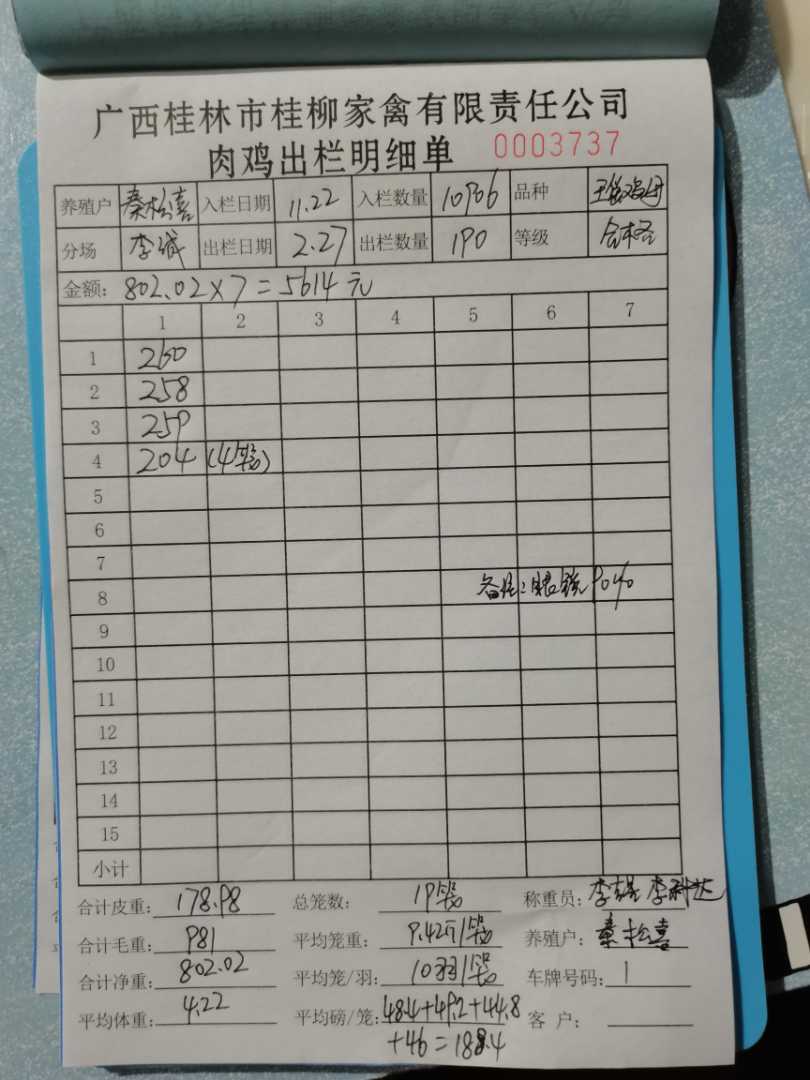 广西桂林市桂柳家禽有限责任公司
肉鸡出栏明细单 0003737
养殖户 秦松喜 入栏日期 11.22 入栏数量 10906 品种
分场 李斌 出栏日期 2.27 出栏数量 190 等级 合格
金额: 802.02×7=5614元
1 2 3 4 5 6 7
1 260
2 258
3 259
4 204 (4笼)
5
6
7
8 备注: 90%
9
10
11
12
13
14
15
小计
合计皮重: 178.98 总笼数: 19笼 称重员: 李 李科达
合计毛重: 981 平均笼重: 9.42斤/笼 养殖户: 秦松喜
合计净重: 802.02 平均笼/羽: 10羽/笼 车牌号码: 1
平均体重: 4.22 平均磅/笼: 48.4+49.2+44.8 客 户:
+46=188.4